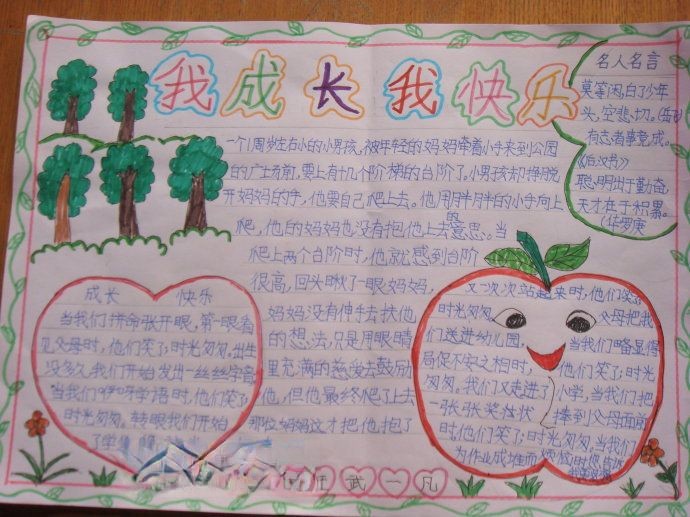 我成长我快乐
名人名言
莫等闲,白了少年
头,空悲切。(岳飞)
有志者事竟成。
《后汉书》
聪明出于勤奋,
天才在于积累。
(华罗庚)
一个1周岁左右小的小男孩,被年轻的妈妈牵着小手来到公园
的广场前,要上有十几个阶梯的台阶了。小男孩却挣脱
开妈妈的手,他要自己爬上去。他用胖胖的小手向上
爬,他的妈妈也没有抱他上去的意思。当
爬上两个台阶时,他就感到台阶
很高,回头瞅了一眼妈妈,
妈妈没有伸手去扶他
的想法,只是用眼睛
里充满的慈爱去鼓励
他,但他最终爬了上去
那位妈妈这才把他抱了
成长 快乐
当我们拼命张开眼,第一眼看
见父母时,他们笑了;时光匆匆,出生
没多久,我们开始发出一丝丝字音
当我们咿呀学语时,他们笑了;
时光匆匆。转眼我们开始
了学
又一次次站起来时,他们笑了
时光匆匆,父母把我
们送进幼儿园,当我们略显得
局促不安之相时,他们笑了;时光
匆匆,我们又走进了小学,当我们把
一张张奖状捧到父母面前
时,他们笑了;时光匆匆,当我们
为作业成堆而烦恼时
武一凡